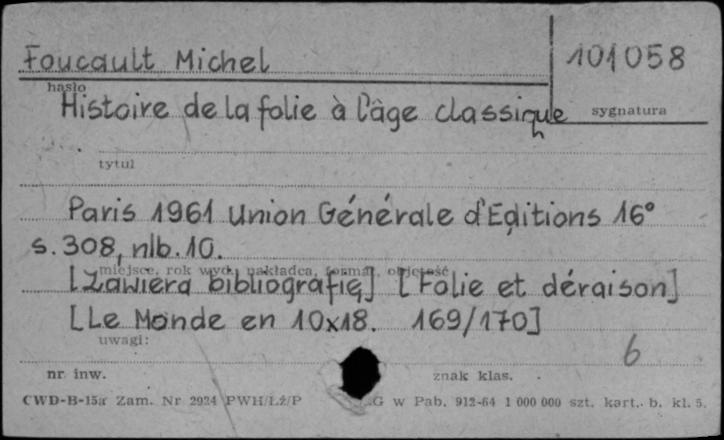 Foucault Michel
101058
hasło
Histoire de la folie à l'âge classique
sygnatura
tytuł
Paris 1961 Union Générale d'Editions 16°
s. 308, nlb. 10.
miejsce, rok wyd., nakładca, format, objętość
[Zawiera bibliografię] [Folie et déraison]
[Le Monde en 10x18. 169/170]
uwagi:
6
nr inw.
znak klas.
CWD-B-15a Zam. Nr 2924 PWH/Łż/P G w Pab. 912-64 1 000 000 szt. kart. b. kl. 5.